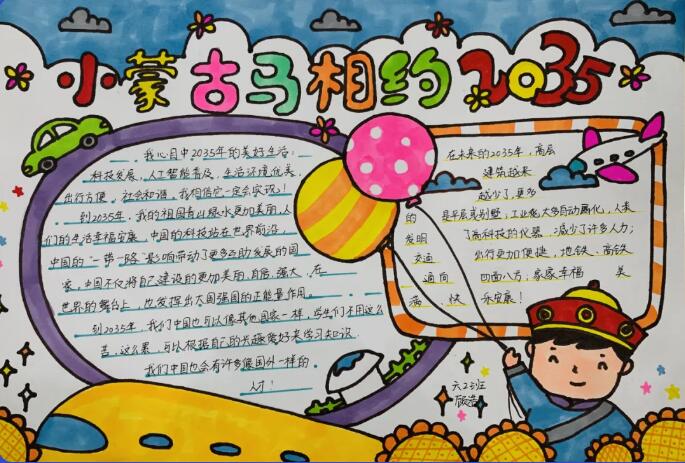 小蒙古马相约2035
我心目中2035年的美好生活:
科技发展、人工智能普及、生活环境优美、
出行方便,社会和谐,我相信它一定会实现!
到2035年,我的祖国青山绿水更加美丽,人
们的生活幸福安康,中国的科技站在世界前沿,
中国的“一带一路”影响带动了更多互助发展的国
家,中国不仅将自己建设的更加美丽、自信、强大,在
世界的舞台上,也发挥出大国强国的正能量作用。
到2035年,我们中国也可以像其他国家一样,学生们不用这么
苦,这么累,可以根据自己的兴趣爱好来学习知识
我们中国也会有许多像国外一样的
人才!
在未来的2035年,高层
建筑越来
越少了,更多
的是平层或别墅,工业化大多自动化,人类
发明了高科技的仪器,减少了许多人力;
交通出行更加便捷,地铁、高铁
通向四面八方;家家幸福美
满、快乐安康!
六23班